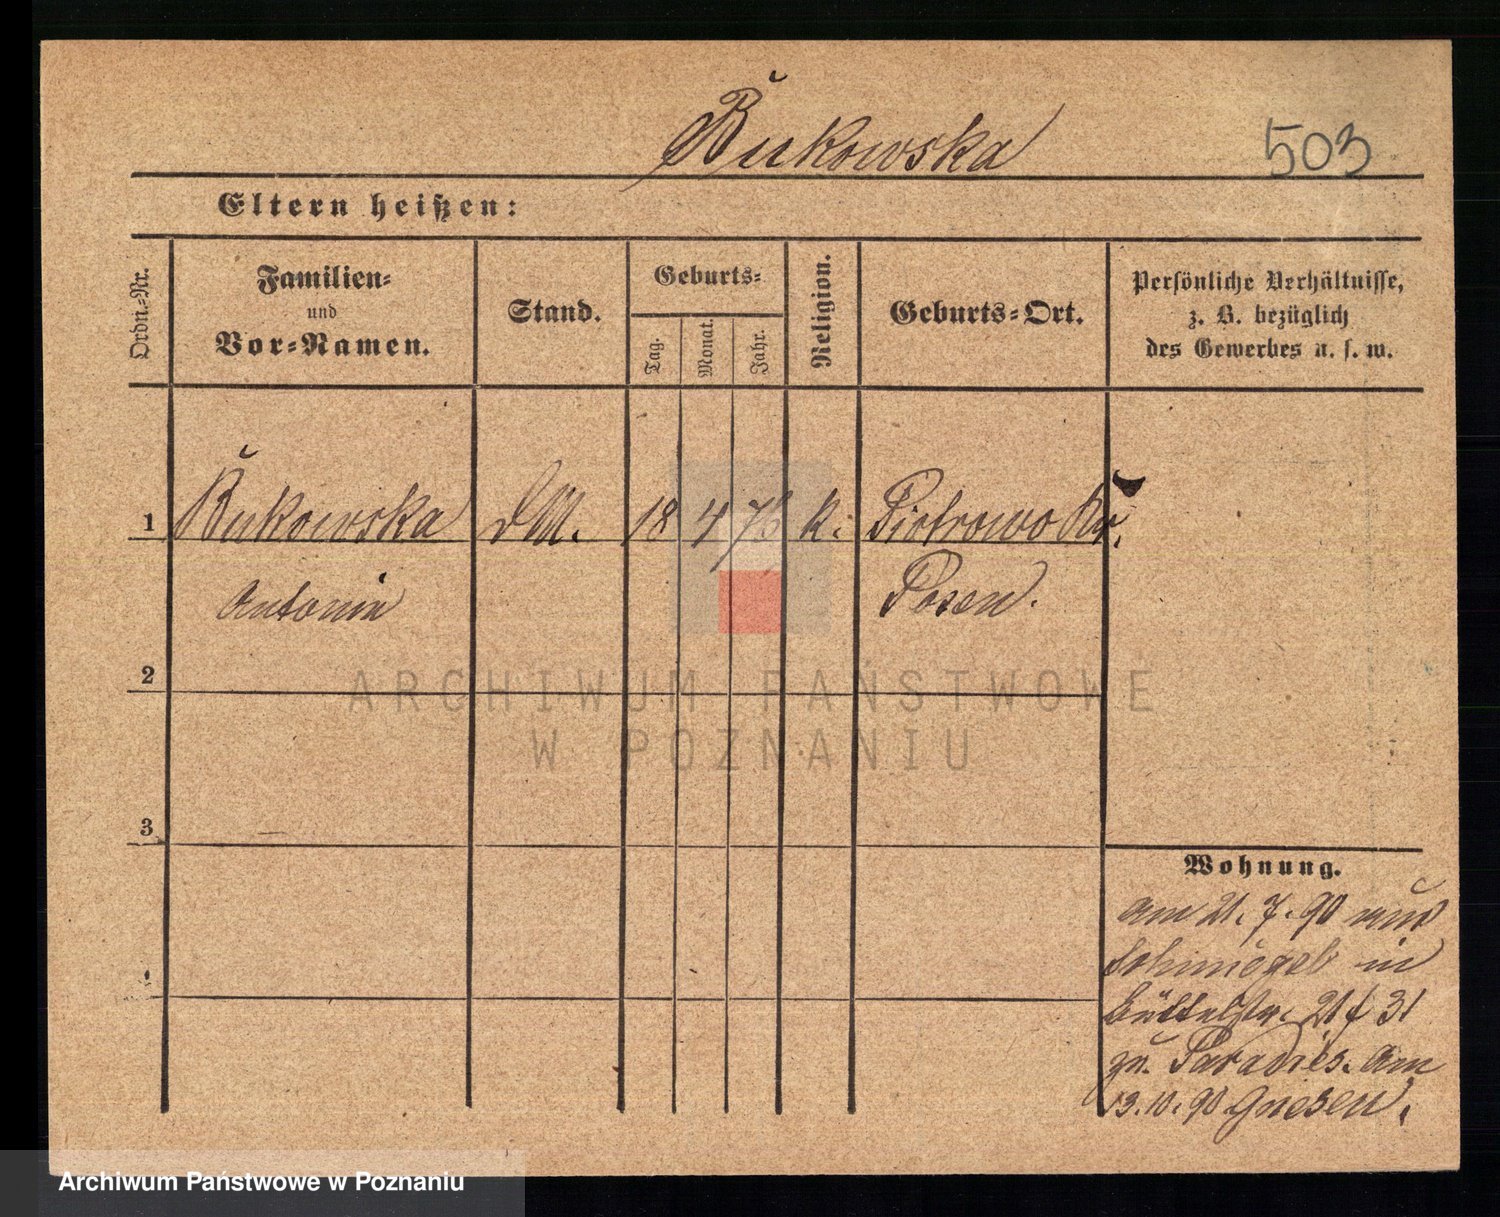 Bukowska
503
Eltern heißen:
Ordn.-Nr.
Familien-
und
Vor-Namen.
Stand.
Geburts-
Tag.
Monat.
Jahr.
Religion.
Geburts-Ort.
Persönliche Verhältnisse,
z. B. bezüglich
des Gewerbes u. s. w.
1 Bukowska DM. 18 4 75 k. Piotrowo Kr.
Antonie Posen.
2
3
Wohnung.
Am 21.7.90 aus
Schmiegel in
Büttelstr. 21 f 31
zu. Paradies. Am
13.10.90 Gnesen.
ARCHIWUM PAŃSTWOWE
W POZNANIU
Archiwum Państwowe w Poznaniu